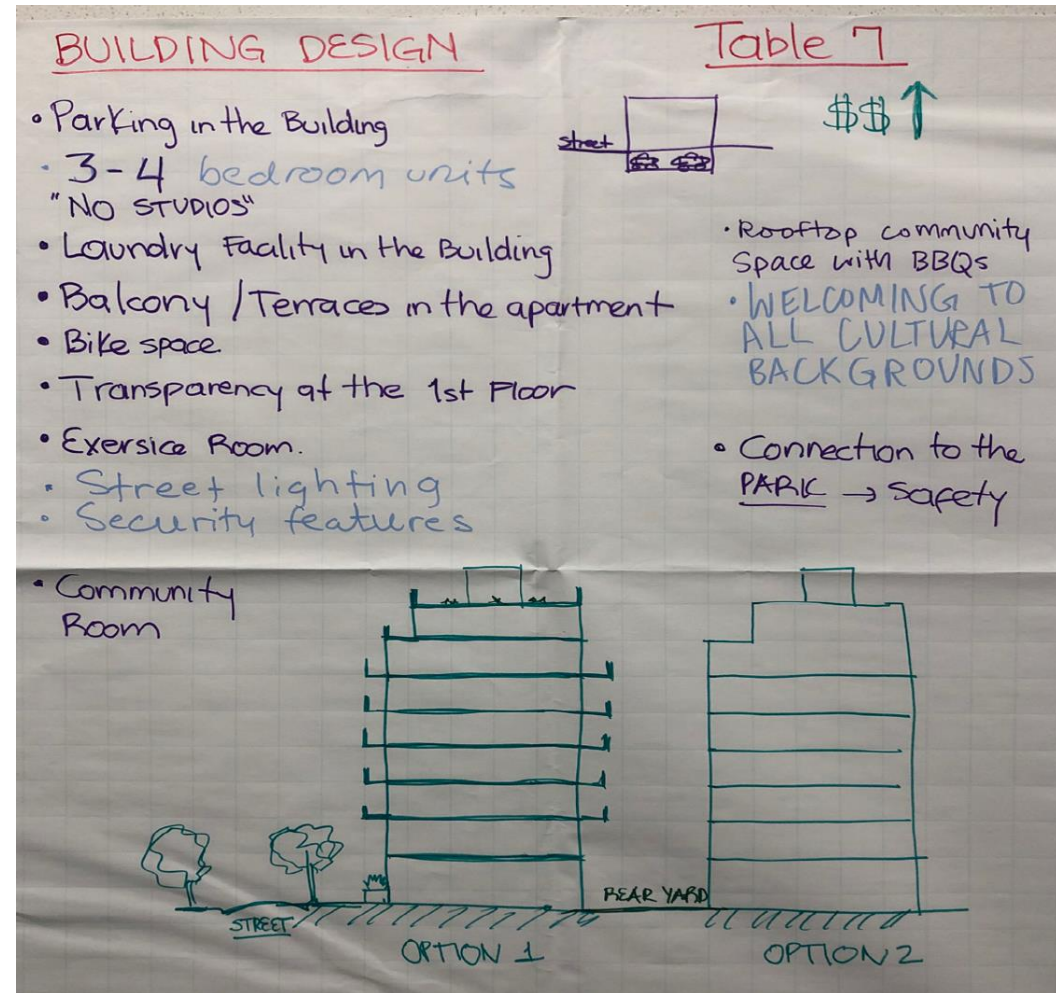 BUILDING DESIGN
Table 7
• Parking in the Building
• 3-4 bedroom units
"NO STUDIOS"
• Laundry Facility in the Building
• Balcony / Terraces in the apartment
• Bike space
• Transparency at the 1st Floor
• Exersice Room.
• Street lighting
• Security features
• Community
Room
street
$$ ↑
• Rooftop community
Space with BBQs
• WELCOMING TO
ALL CULTURAL
BACKGROUNDS
• Connection to the
PARK → Safety
STREET
REAR YARD
OPTION 1
OPTION 2